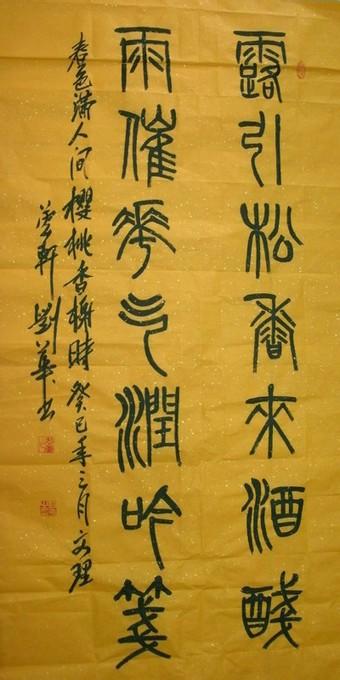 露引松香來酒醆
雨催花气潤吟箋
春色滿人间櫻桃香榭時癸巳年三月文理
軒劉華书